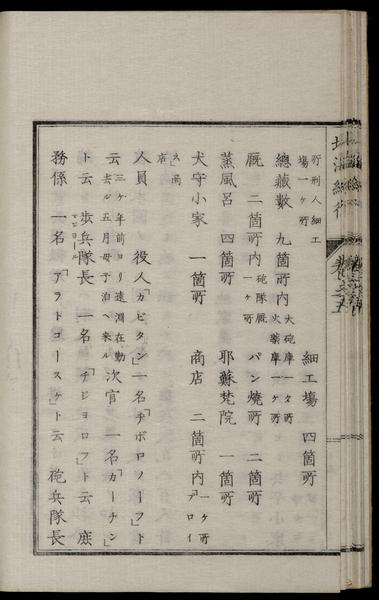 刑人細工
場一ヶ所
細工場 四箇所
總藏數 九箇所内 大砲庫一ヶ所 火藥庫一ヶ所
厩 二箇所内 砲隊厩一ヶ所 パン燒所 二箇所
蒸風呂 四箇所 耶蘇梵院 一箇所
犬守小家 一箇所 商店 二箇所内 一ヶ所アロイ
店
人員 役人「カピタン」一名「チボロノーフ」ト
云 三ヶ年前ヨリ遠淵在勤去ル五月母子泊ヘ來ル 次官 一名「カーチン」
ト云 歩兵隊長 一名「チジヨロフ」ト云 庶
務係 一名「アラトコースケ」ト云 砲兵隊長